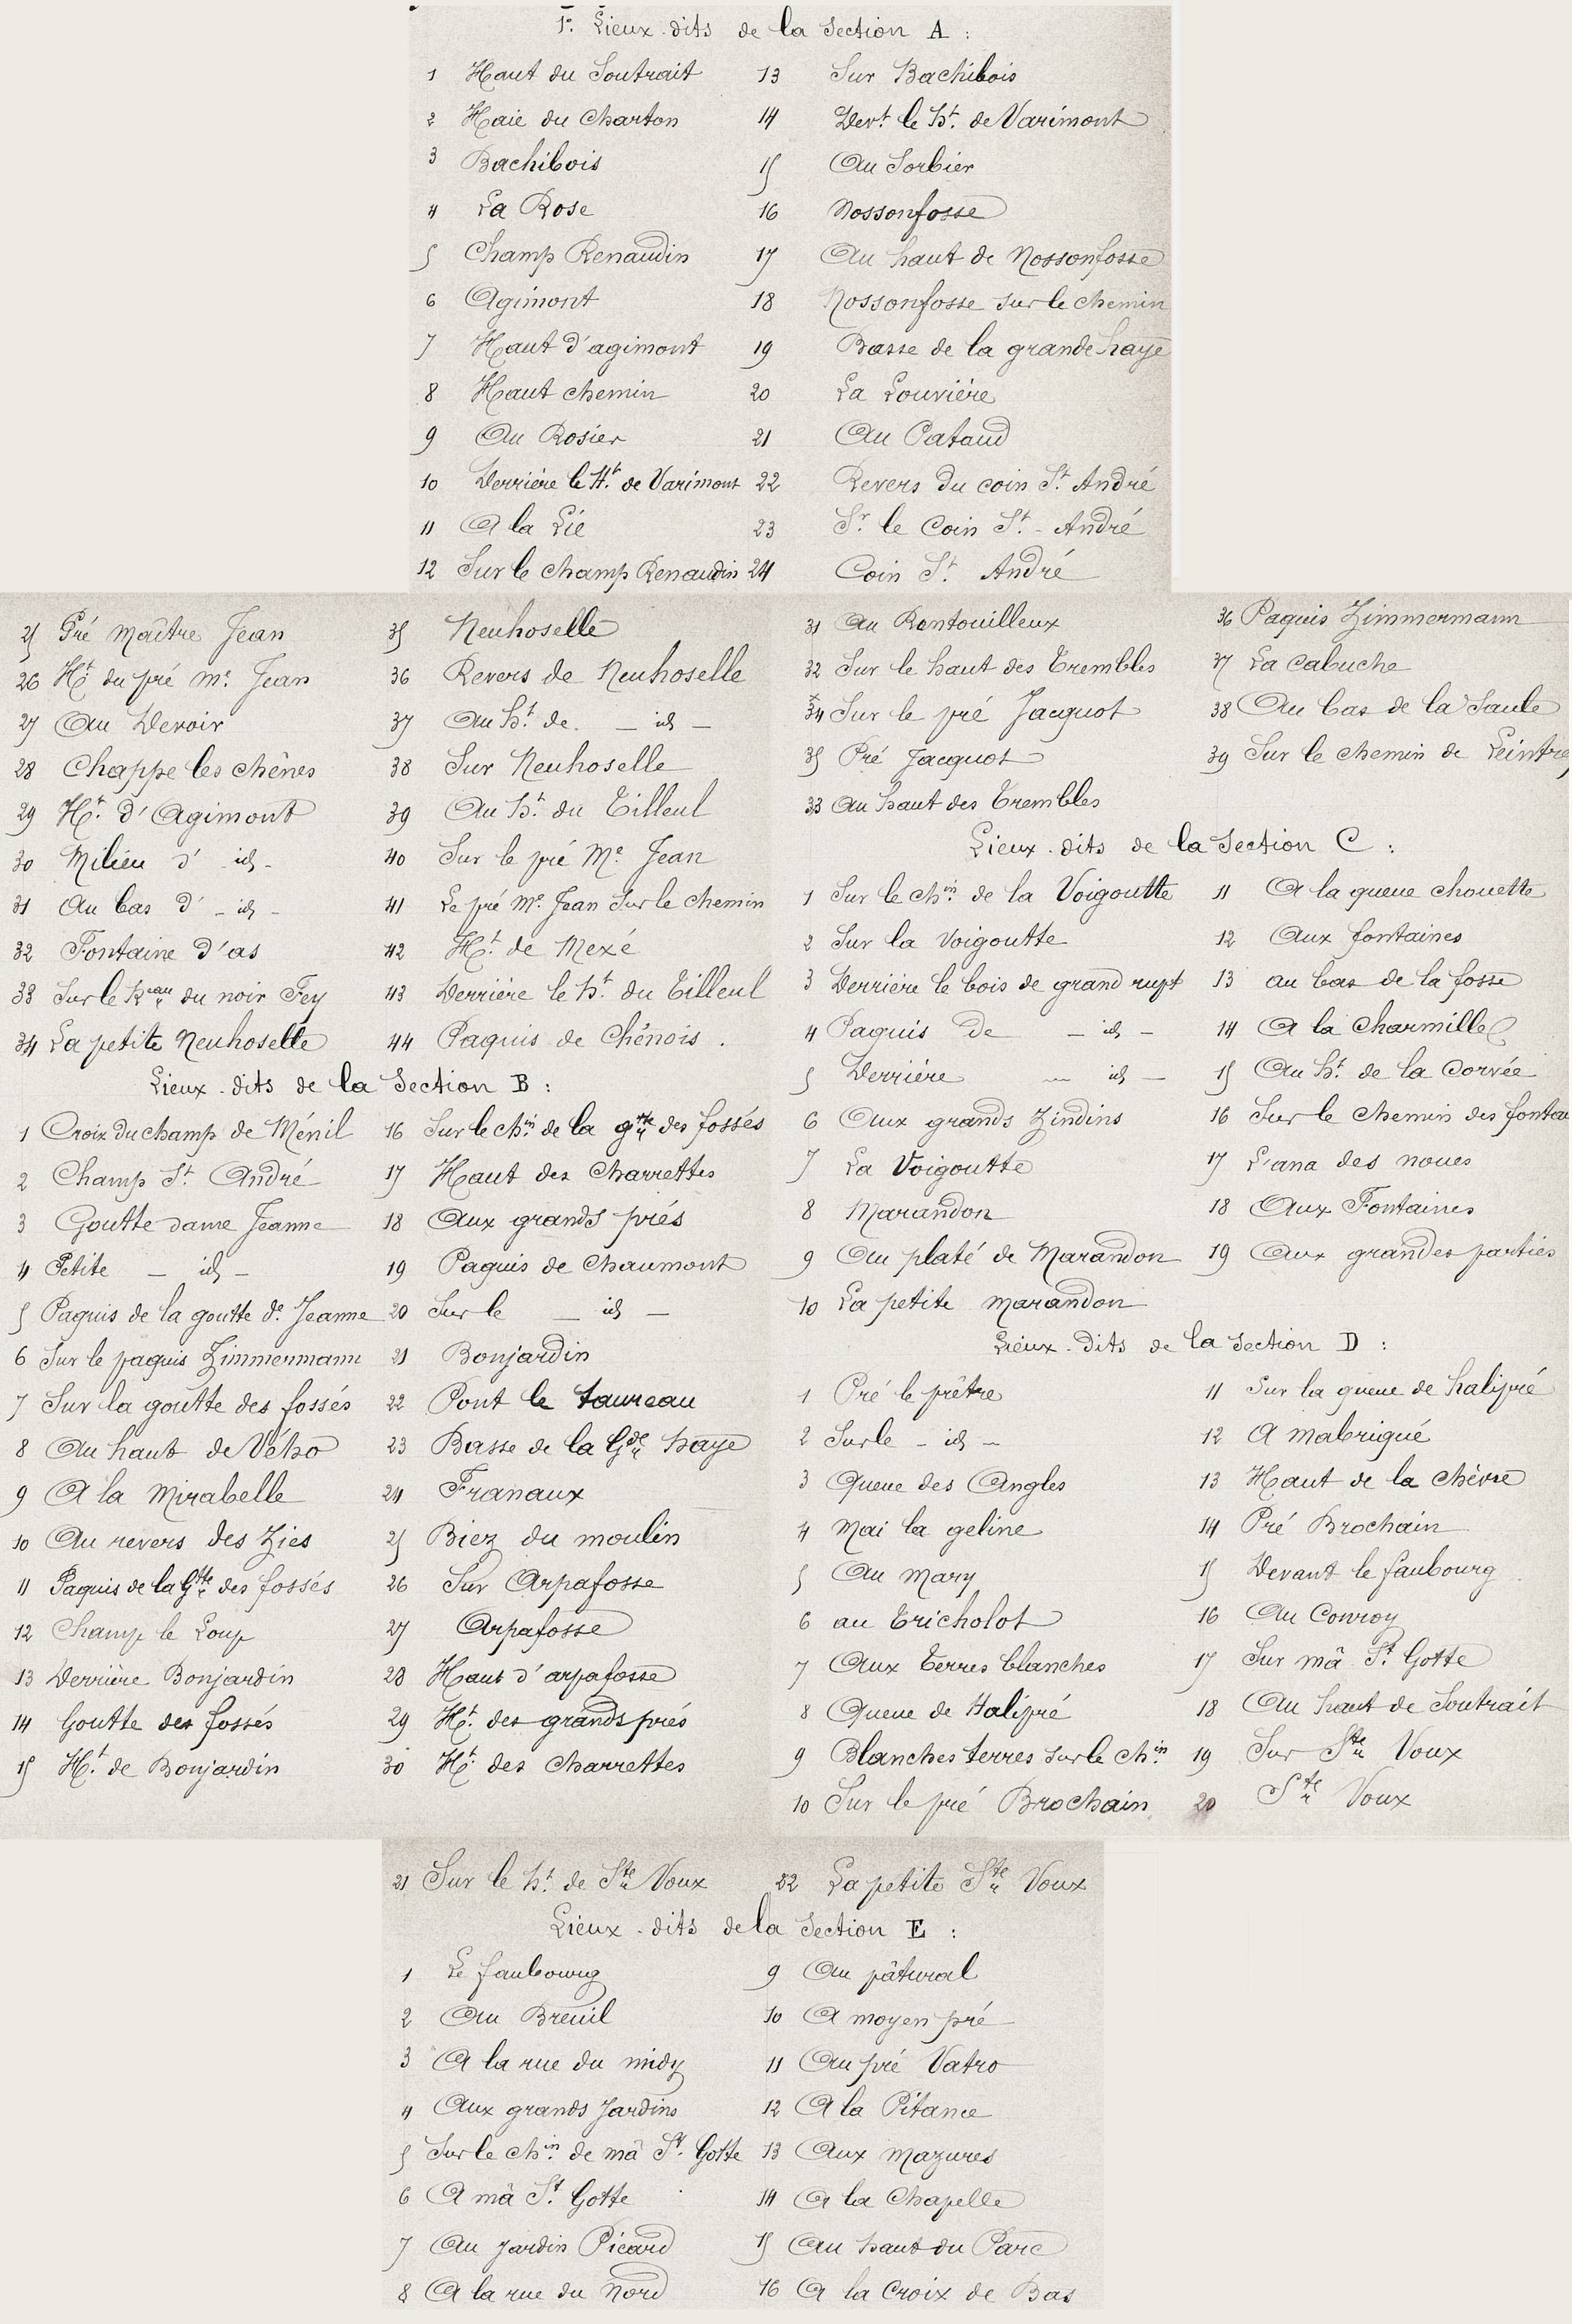 1º. Lieux-dits de la Section A :
1 Haut du Soutrait
2 Haie du Charton
3 Bachibois
4 La Rose
5 Champ Renaudin
6 Agimont
7 Haut d'agimont
8 Haut chemin
9 Au Rosier
10 Derrière le Ht. de Varimont
11 A la Lie
12 Sur le champ Renaudin
13 Sur Bachibois
14 Devt. le ht. de Varimont
15 Au Sorbier
16 Nossonfosse
17 Au haut de Nossonfosse
18 Nossonfosse sur le chemin
19 Basse de la grande haye
20 La Louvière
21 Au Pataud
22 Revers du coin St. André
23 Sr. le Coin St.-André
24 Coin St. André
25 Pré Maître Jean
26 Ht. du pré Me. Jean
27 Au Devoir
28 Chappe les chênes
29 Ht. d'Agimont
30 Milieu d' - id -
31 Au bas d' - id -
32 Fontaine d'as
33 Sur le heau du noir Fey
34 La petite Neuhoselle
35 Neuhoselle
36 Revers de Neuhoselle
37 Au ht. de. - id -
38 Sur Neuhoselle
39 Au ht. du Tilleul
40 Sur le pré Me. Jean
41 Le pré Me. Jean sur le chemin
42 Ht. de Mexé
43 Derrière le ht. du Tilleul
44 Paquis de Chênois.
Lieux-dits de la Section B :
1 Croix du champ de Ménil
2 Champ St. André
3 Goutte dame Jeanne
4 Petite - id -
5 Paquis de la goutte de. Jeanne
6 Sur le paquis Zimmermann
7 Sur la goutte des fossés
8 Au haut de Vého
9 A la Mirabelle
10 Au revers des Zies
11 Paquis de la Gtte des fossés
12 Champ le Loup
13 Derrière Bonjardin
14 Goutte des fossés
15 Ht. de Bonjardin
16 Sur le chin. de la gtte des fossés
17 Haut des Charrettes
18 Aux grands prés
19 Paquis de Chaumont
20 Sur le - id -
21 Bonjardin
22 Pont le taureau
23 Basse de la Gde haye
24 Franaux
25 Biez du moulin
26 Sur Arpafosse
27 Arpafosse
28 Haut d'arpafosse
29 Ht. des grands prés
30 Ht. des Charrettes
31 Au Rontouilleux
32 Sur le haut des Trembles
34 Sur le pré Jacquot
35 Pré Jacquot
33 Au haut des Trembles
36 Paquis Zimmermann
37 La Cabuche
38 Au bas de la Saule
39 Sur le chemin de Leintrey
Lieux-dits de la Section C :
1 Sur le chin. de la Voigoutte
2 Sur la Voigoutte
3 Derrière le bois de grand rupt
4 Paquis de - id -
5 Derrière - id -
6 Aux grands Zindins
7 La Voigoutte
8 Marandon
9 Au platé de Marandon
10 La petite Marandon
11 A la queue chouette
12 Aux fontaines
13 au bas de la fosse
14 A la Charmille
15 Au ht. de la Corvée
16 Sur le chemin des fontai
17 L'ana des noues
18 Aux Fontaines
19 Aux grandes parties
Lieux-dits de la Section D :
1 Pré le prêtre
2 Sur le - id -
3 Queue des Angles
4 Mai la geline
5 Au Mary
6 au Tricholot
7 Aux Terres blanches
8 Queue de Halipré
9 Blanches terres sur le chin.
10 Sur le pré Brochain
11 Sur la queue de halipré
12 A mabrigué
13 Haut de la chèvre
14 Pré Brochain
15 Devant le faubourg
16 Au Conroy
17 Sur mâ St. Gotte
18 Au haut de Soutrait
19 Sur Ste Voux
20 Ste Voux
21 Sur le ht. de Ste Voux
22 La petite Ste Voux
Lieux-dits de la Section E :
1 Le faubourg
2 Au Breuil
3 A la rue du midy
4 Aux grands Jardins
5 Sur le chin. de mâ St. Gotte
6 A mâ St. Gotte
7 Au Jardin Picard
8 A la rue du Nord
9 Au pâtural
10 A moyen pré
11 Au pré Vatro
12 A la Pitance
13 Aux mazures
14 A la Chapelle
15 Au haut du Parc
16 A la Croix de Bas